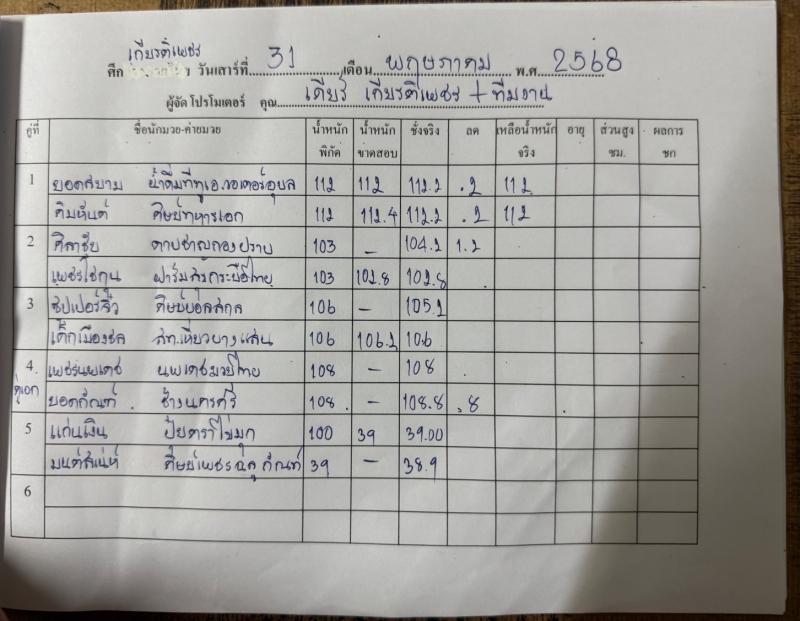 ศึก เกียรติเพชร วันเสาร์ที่ 31 เดือน พฤษภาคม พ.ศ. 2568
ผู้จัด โปรโมเตอร์ คุณ เดียร์ เกียรติเพชร + ทีมงาน
คู่ที่ ชื่อนักมวย-ค่ายมวย น้ำหนักพิกัด น้ำหนักขาดสอบ ชั่งจริง ลด เหลือน้ำหนักจริง อายุ ส่วนสูง ซม. ผลการชก
1 ยอดสยาม น้ำดื่มทีทูเอ.วอเตอร์อุบล 112 112 112.2 .2 112
คิมหันต์ ศิษย์ทหารเอก 112 112.4 112.2 .2 112
2 ศิลาชัย ดาบชาญกองปราบ 103 – 104.2 1.2
เพชรโชกุน 103 102.8 102.8
3 ซุปเปอร์จิ๋ว ศิษย์บอลสกล 106 – 105.2
เด็กเมืองชล สท.เหี่ยวบางแสน 106 106.2 106
4. เพชรนพเดช นพเดชมวยไทย 108 – 108
คู่เอก ยอดกัณฑ์ ช้างนครศรี 108 – 108.8 .8
5 แก่นเงิน ป๋ายดาราไข่มุก 100 39 39.00
มนต์สเน่ห์ 39 – 38.9
6